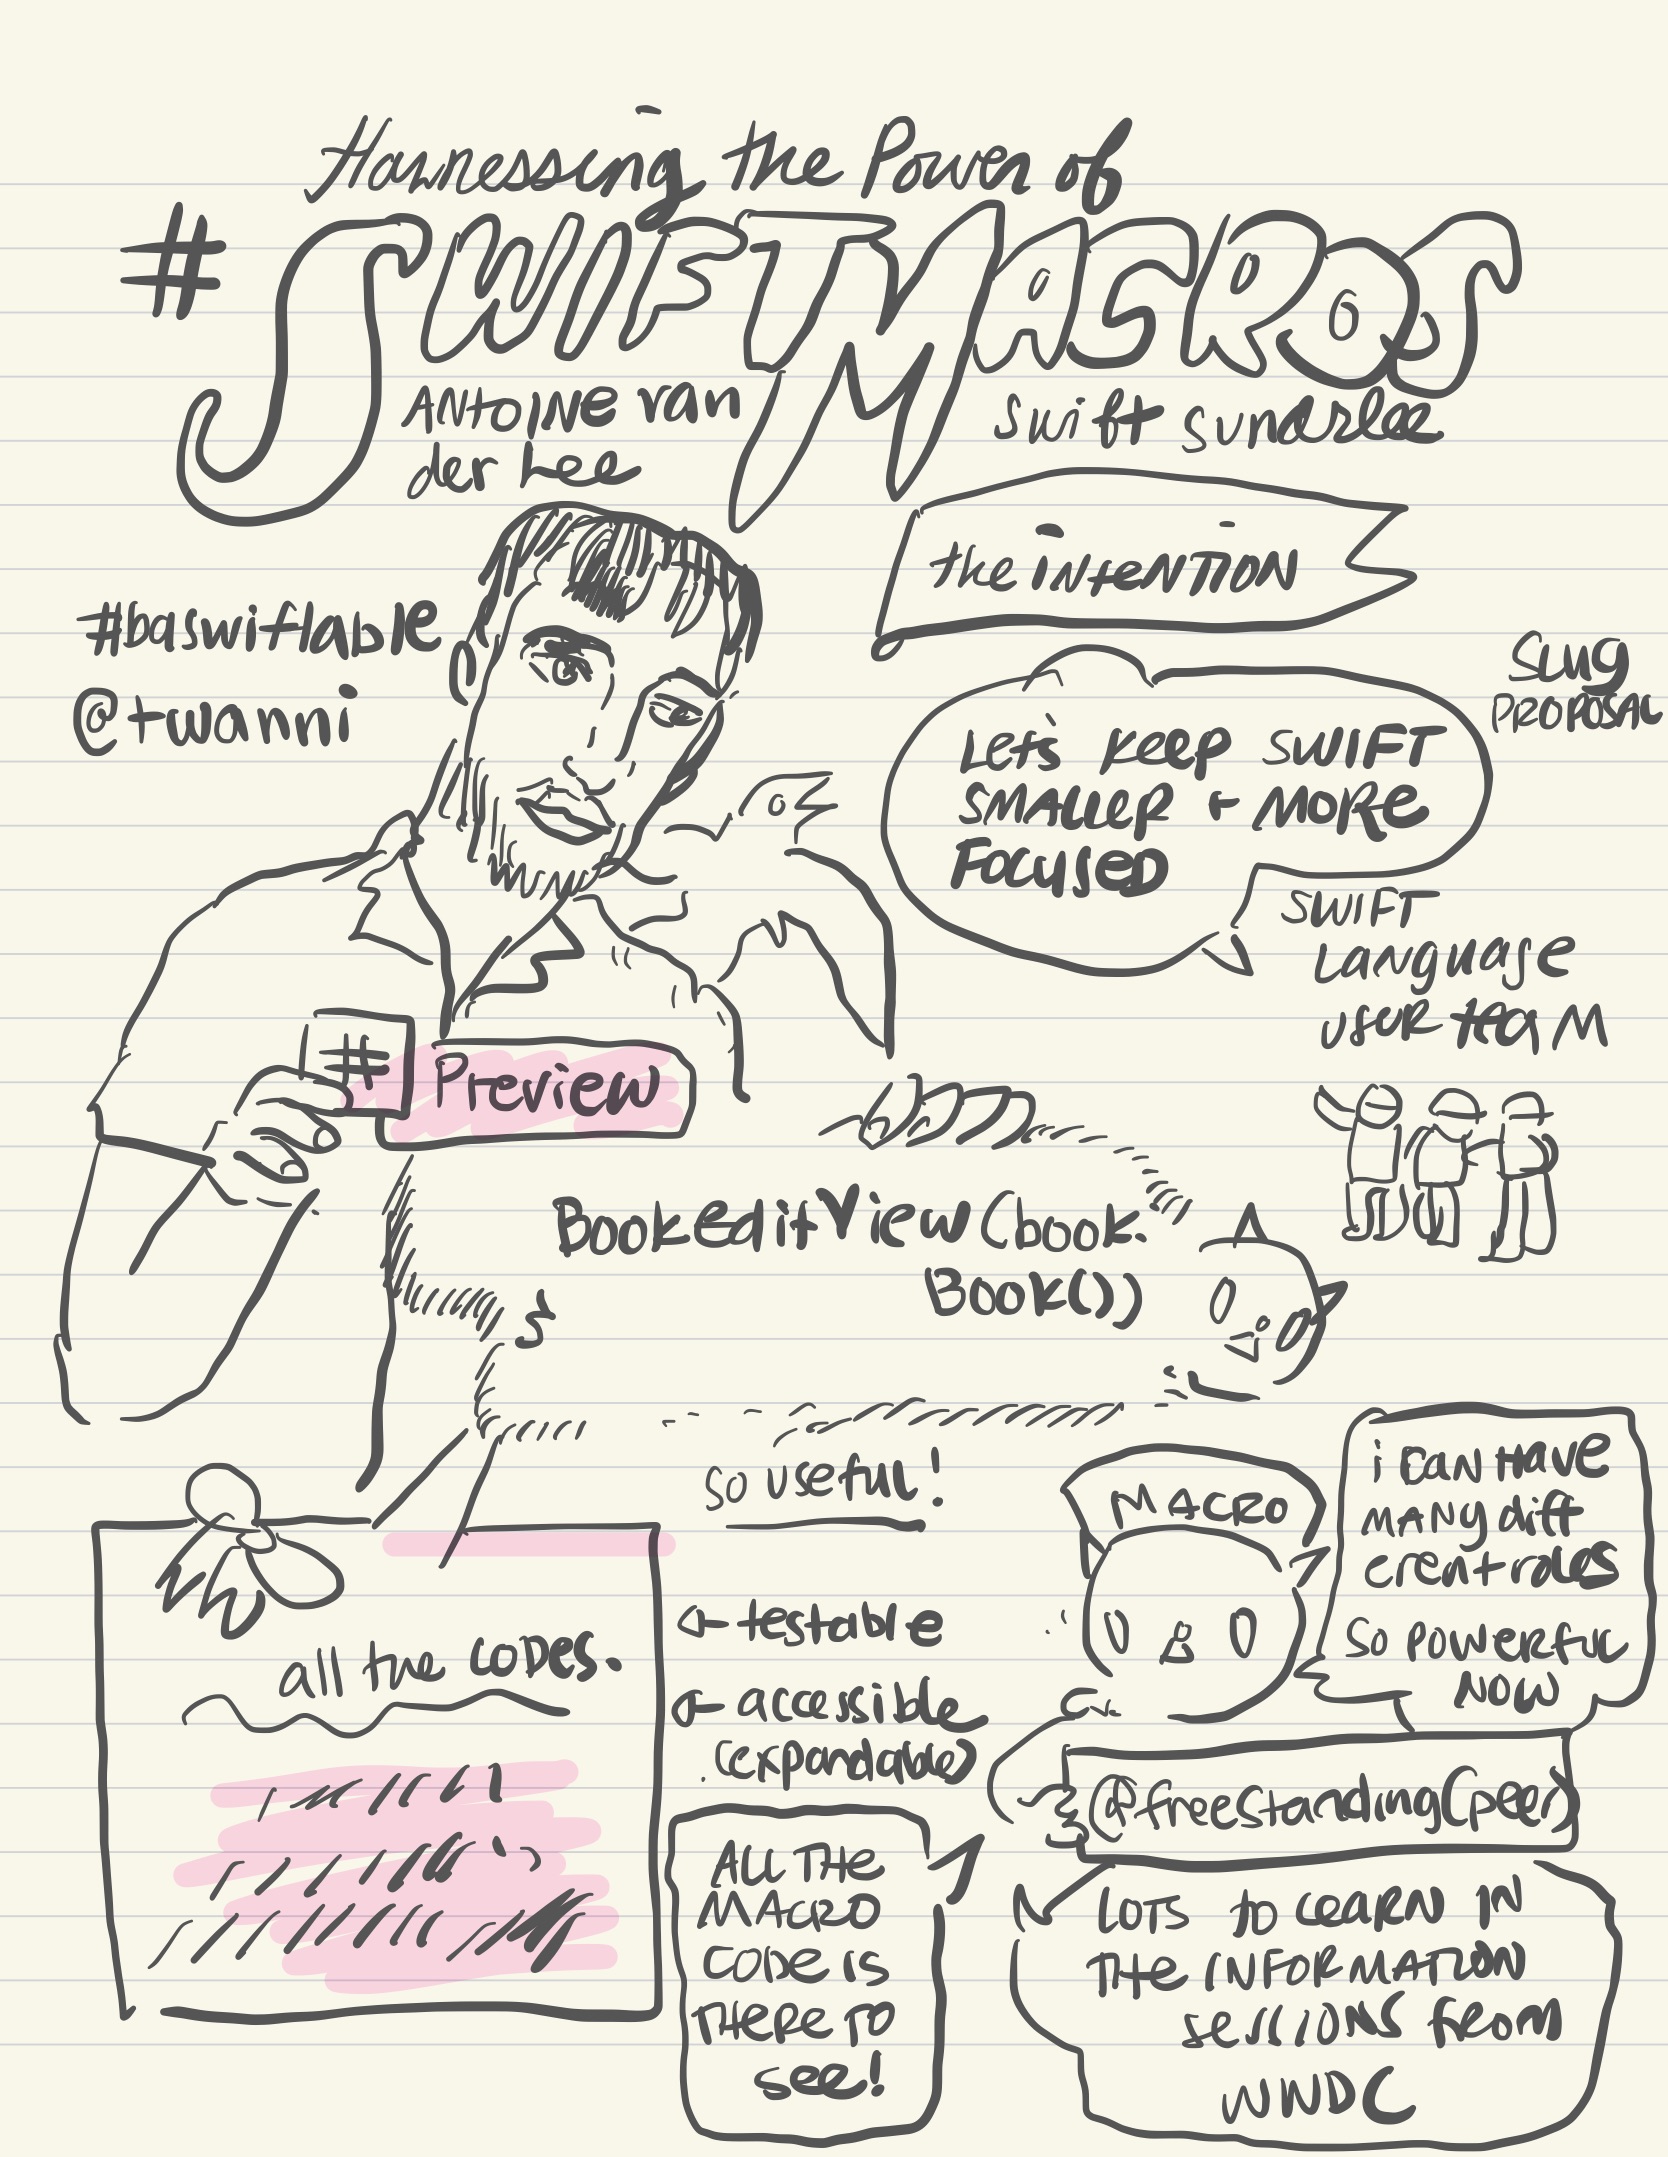 Harnessing the Power of
# SWIFT MACROS
ANtoiNe van
der Lee
Swift Sundrlee
#baswiftable
@twanni
the intention
SLUG
PROPOSAL
Let's keep SWIFT
SMALLER + MORE
FOCUSED
SWIFT
LANGUAGE
USER team
# Preview
BookeditView (book.
Book())
}
so useful!
all the CODES.
testable
accessible
(expandable)
ALL THE
MACRO
CODE IS
THERE TO
see!
MACRO
i CAN HAVE
MANY diff
erent roles
SO POWERFUL
NOW
@freestanding(peer)
LOTS to LEARN IN
THE INFORMATION
SESSIONS FROM
WWDC